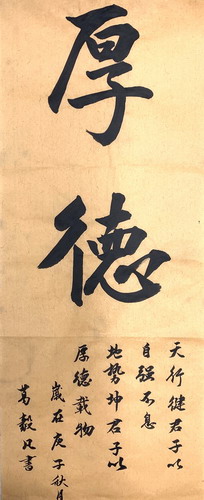 厚
德
天行健君子以
自强不息
地势坤君子以
厚德载物
岁在庚子秋月
葛毅凡书